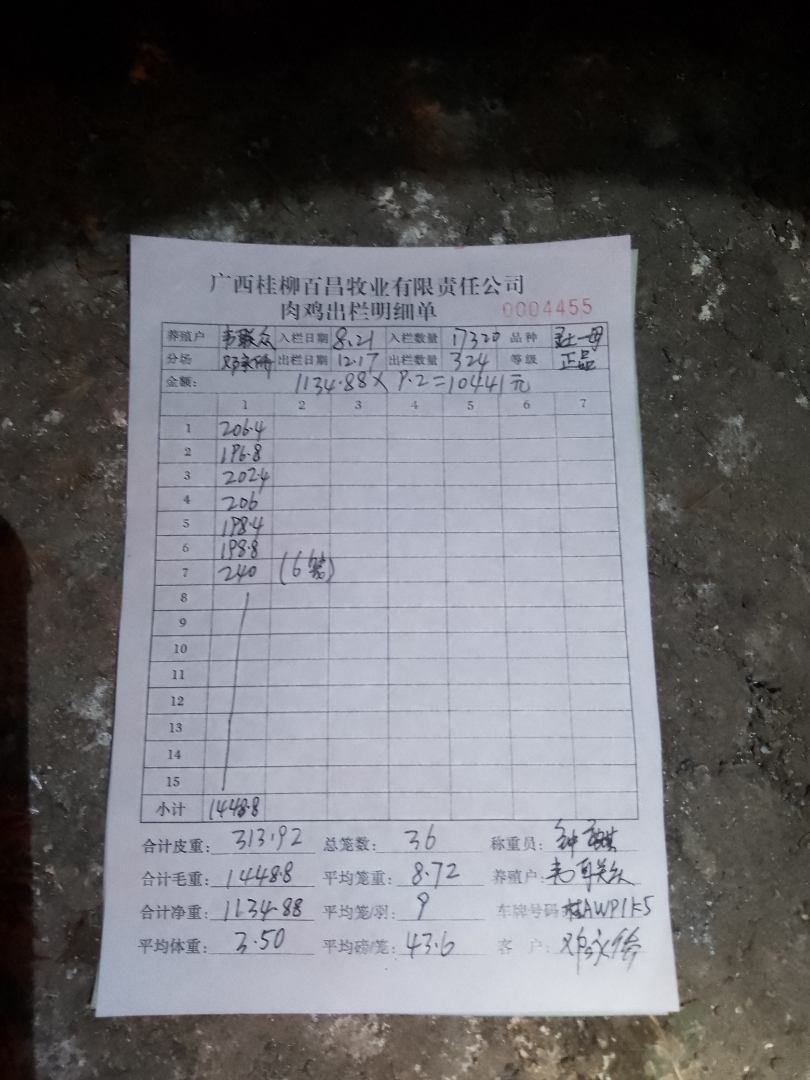 广西桂柳百昌牧业有限责任公司
肉鸡出栏明细单 0004455
养殖户 韦联众 入栏日期 8.21 入栏数量 17320 品种 土一母
分场 出栏日期 12.17 出栏数量 324 等级 正品
金额: 1134.88×9.2=10441元
1 2 3 4 5 6 7
1 206.4
2 196.8
3 202.4
4 206
5 198.4
6 198.8
7 240 (6笼)
8
9
10
11
12
13
14
15
小计 1448.8
合计皮重: 313.92 总笼数: 36 称重员: 钟
合计毛重: 1448.8 平均笼重: 8.72 养殖户: 韦联众
合计净重: 1134.88 平均笼/羽: 9 车牌号码 桂AWP1K5
平均体重: 3.50 平均磅/笼: 43.6 客 户: 邓永